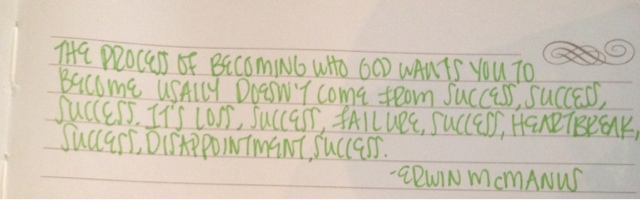 THE PROCESS OF BECOMING WHO GOD WANTS YOU TO
BECOME USALLY DOESN'T COME FROM SUCCESS, SUCCESS,
SUCCESS. IT'S LOSS, SUCCESS, FAILURE, SUCCESS, HEARTBREAK,
SUCCESS, DISAPPOINTMENT, SUCCESS.
-ERWIN MCMANUS